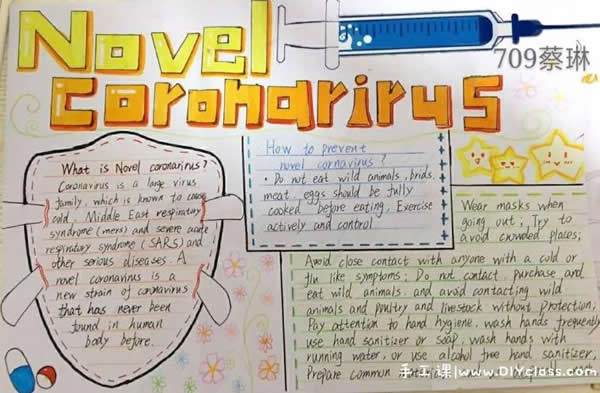 Novel
coronarirus
709蔡琳
What is Novel coronarinus?
Coronarirus is a large virus
family, which is known to cause
cold, Middle East respiratory
syndrome (mers) and severe acute
respiratory syndrome (SARS) and
other serious diseases. A
novel coronarirus is a
new strain of coronavirus
that has never been
found in human
body before.
How to prevent
novel cornavirus?
· Do not eat wild animals, brids.
meat, eggs should be fully
cooked before eating, Exercise
actively and control
Wear masks when
going out; Try to
avoid crowded places;
Avoid close contact with anyone with a cold or
flu like symptoms; Do not contact, purchase and
eat wild animals, and avoid contacting wild
animals and poultry and livestock without protection.
Pay attention to hand hygiene, wash hands frequently
use hand sanitizer or soap, wash hands with
running water, or use alcohol free hand sanitizer,
Prepare common
手工课|www.DIYclass.com